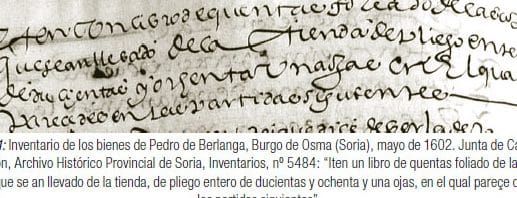 de quentas foliado de
que se an llebado de la tienda de pliego ente
de ducientas y ochenta y una ojas en el qua
en las partidas siguientes
1: Inventario de los bienes de Pedro de Berlanga, Burgo de Osma (Soria), mayo de 1602. Junta de Ca
ón, Archivo Histórico Provincial de Soria, Inventarios, nº 5484: “Iten un libro de quentas foliado de la
que se an llevado de la tienda, de pliego entero de ducientas y ochenta y una ojas, en el qual pareçe
las partidas siguientes”